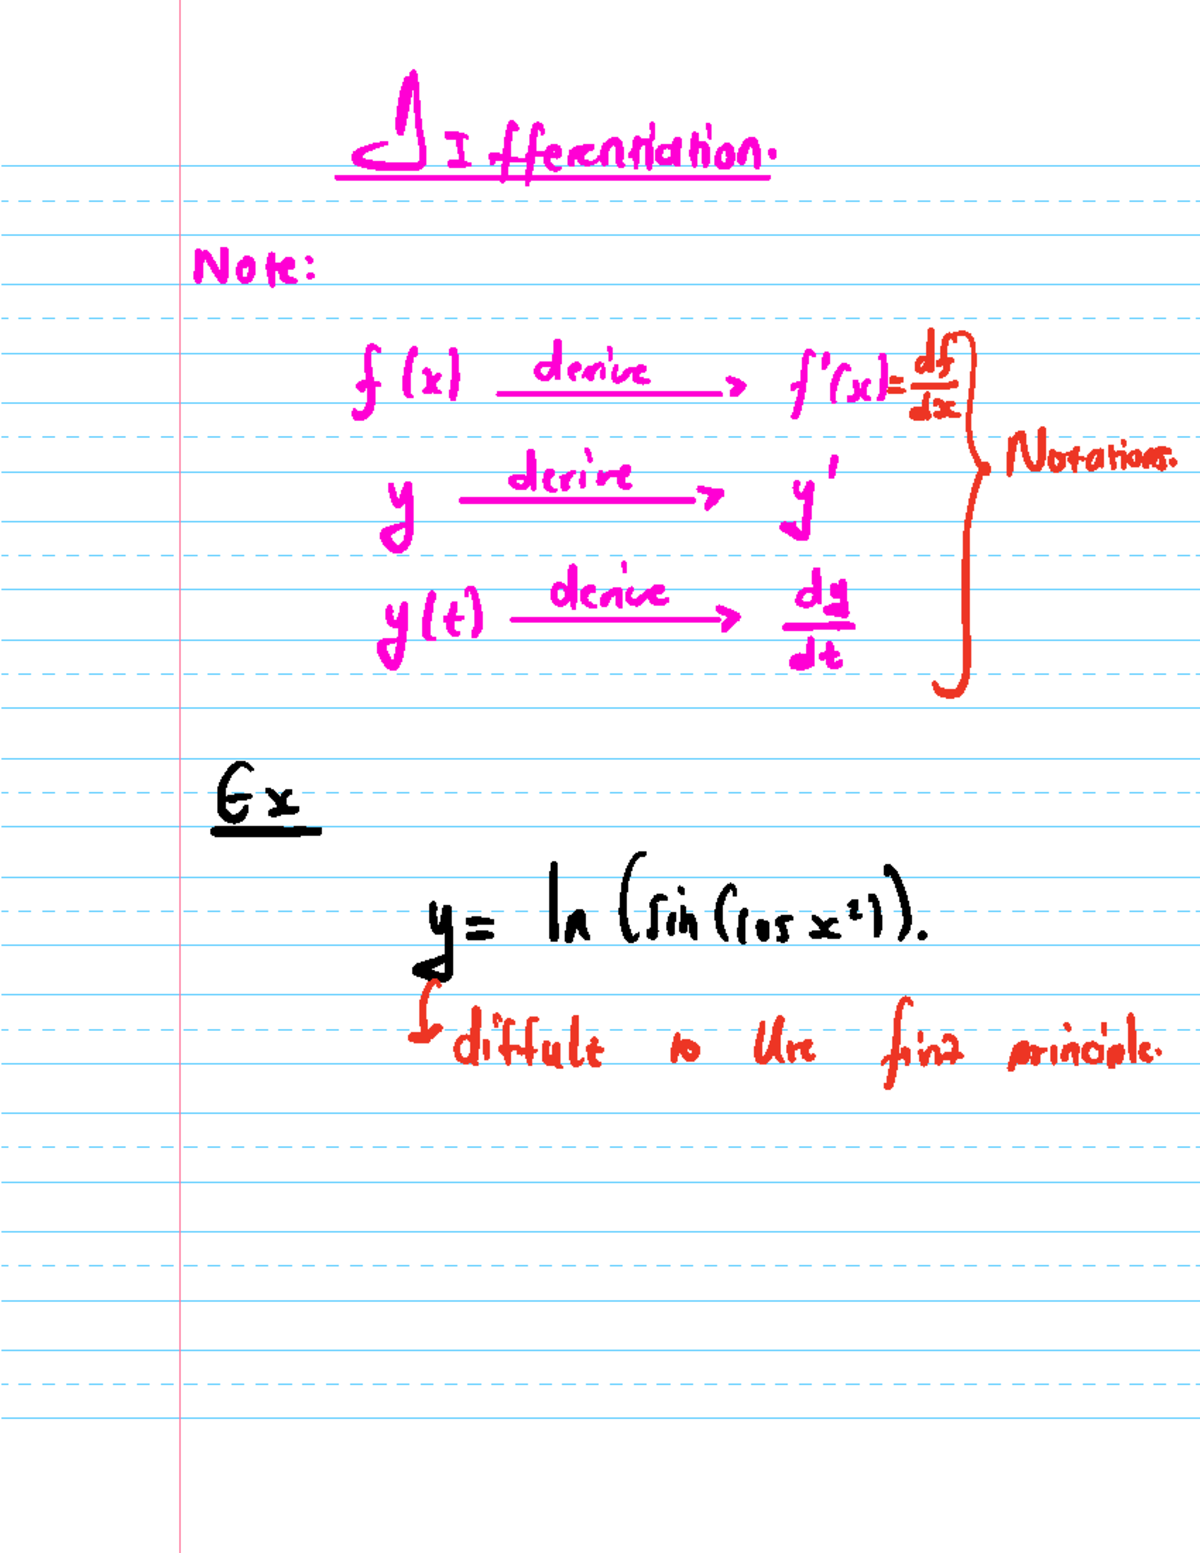 Differentiation.
Note:
f(x) derive → f'(x) = df/dx
y derive → y'
Notations.
y(t) derive → dy/dt
Ex
y = ln(sin(cos x²)).
diffult to Use first principle.